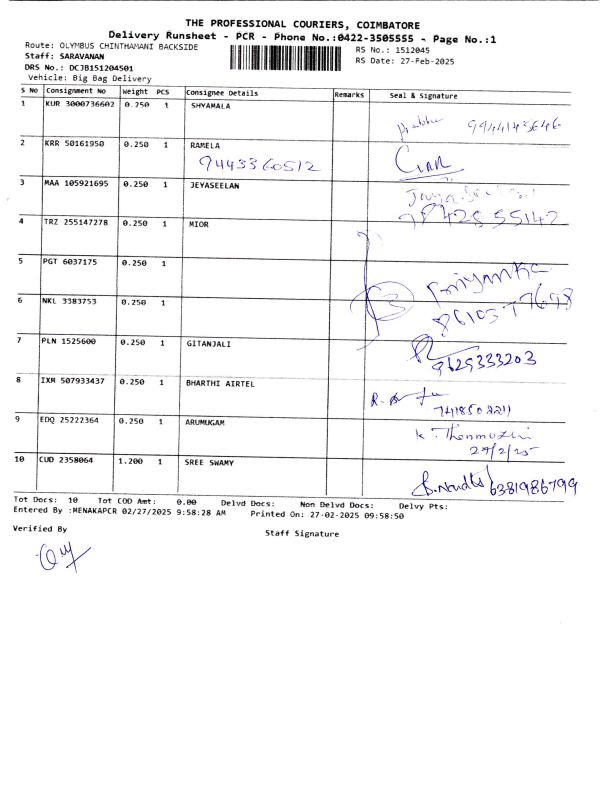 THE PROFESSIONAL COURIERS, COIMBATORE
Delivery Runsheet - PCR - Phone No.:0422-3505555 - Page No.:1
Route: OLYMBUS CHINTHAMANI BACKSIDE RS No.: 1512045
Staff: SARAVANAN RS Date: 27-Feb-2025
DRS No.: DCJB151204501
Vehicle: Big Bag Delivery
S No Consignment No Weight PCS Consignee Details Remarks Seal & Signature
1 KUR 3000736602 0.250 1 SHYAMALA
Prabhu 9944145646
2 KRR 50161950 0.250 1 RAMELA
9443360512
3 MAA 105921695 0.250 1 JEYASEELAN
4 TRZ 255147278 0.250 1 MIOR
5 PGT 6037175 0.250 1
Priyanka
6 NKL 3383753 0.250 1
7 PLN 1525600 0.250 1 GITANJALI
9629333203
8 IXM 507933437 0.250 1 BHARTHI AIRTEL
9 EDQ 25222364 0.250 1 ARUMUGAM
K. Thenmozhi
10 CUD 2358064 1.200 1 SREE SWAMY
6381986799
Tot Docs: 10 Tot COD Amt: 0.00 Delvd Docs: Non Delvd Docs: Delvy Pts:
Entered By :MENAKAPCR 02/27/2025 9:58:28 AM Printed On: 27-02-2025 09:58:50
Verified By
Staff Signature